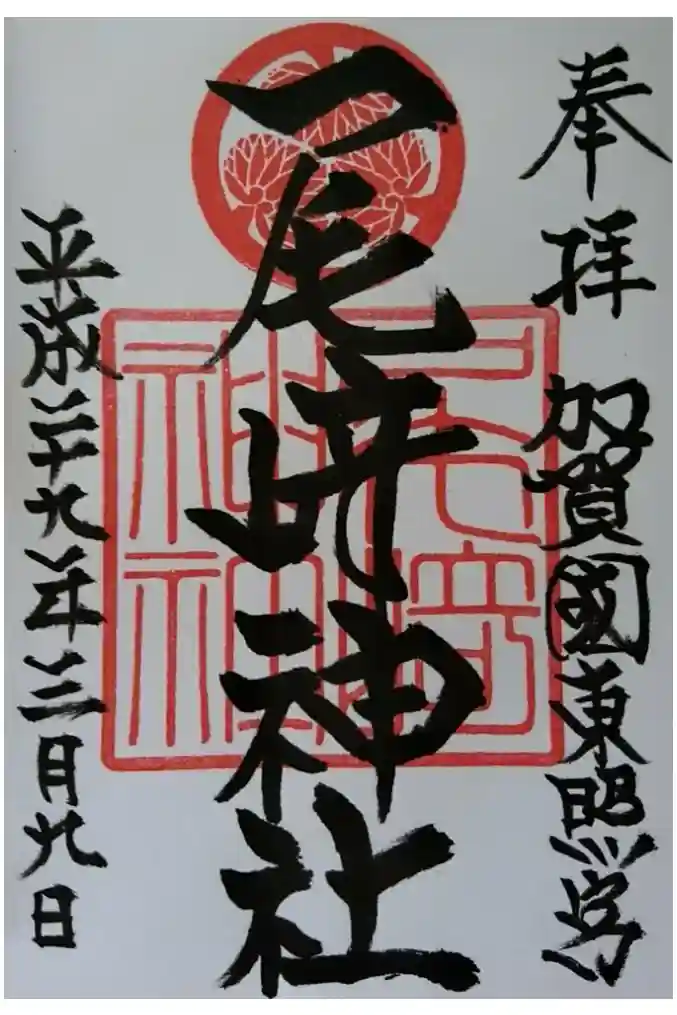 奉拝 加賀國東照宮
尾﨑神社
平成二十九年三月九日